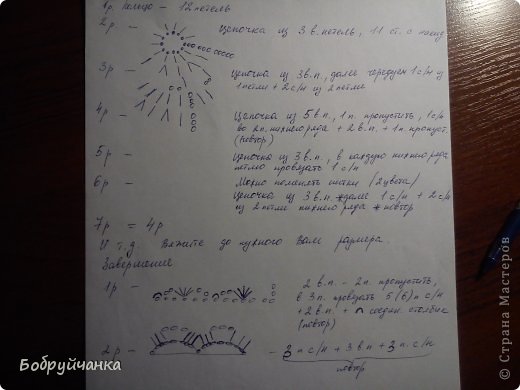 1р. Кольцо - 12 петель
2р - Цепочка из 3 в. петель, 11 ст. с накид
3р - Цепочка из 3 в.п., далее чередуем 1 с/н из
1 петли + 2 с/н из 2 петли
4р - Цепочка из 5 в.п., 1 п. пропустить, 1 с/н
во 2 п. нижнего ряда + 2 в.п. + 1 п. пропуст.
(повтор)
5р - Цепочка из 3 в.п., в каждую нижнего ряда
петлю провязать 1 с/н
6р - Можно поменять нитки (2 цвета)
Цепочка из 3 в.п. *далее 1 с/н + 2 с/н
из 2 петли нижнего ряда * повтор
7р = 4р
И т.д. Вяжите до нужного Вам размера.
Завершение
1р - 2 в.п. - 2 п. пропустить,
в 3 п. провязать 5(6) п с/н
+ 2 в.п. + соедин. столбик
(повтор)
2р - - 3 п с/н + 3 вп + 3 п. с/н
повтор
Бобруйчанка
© Страна Мастеров